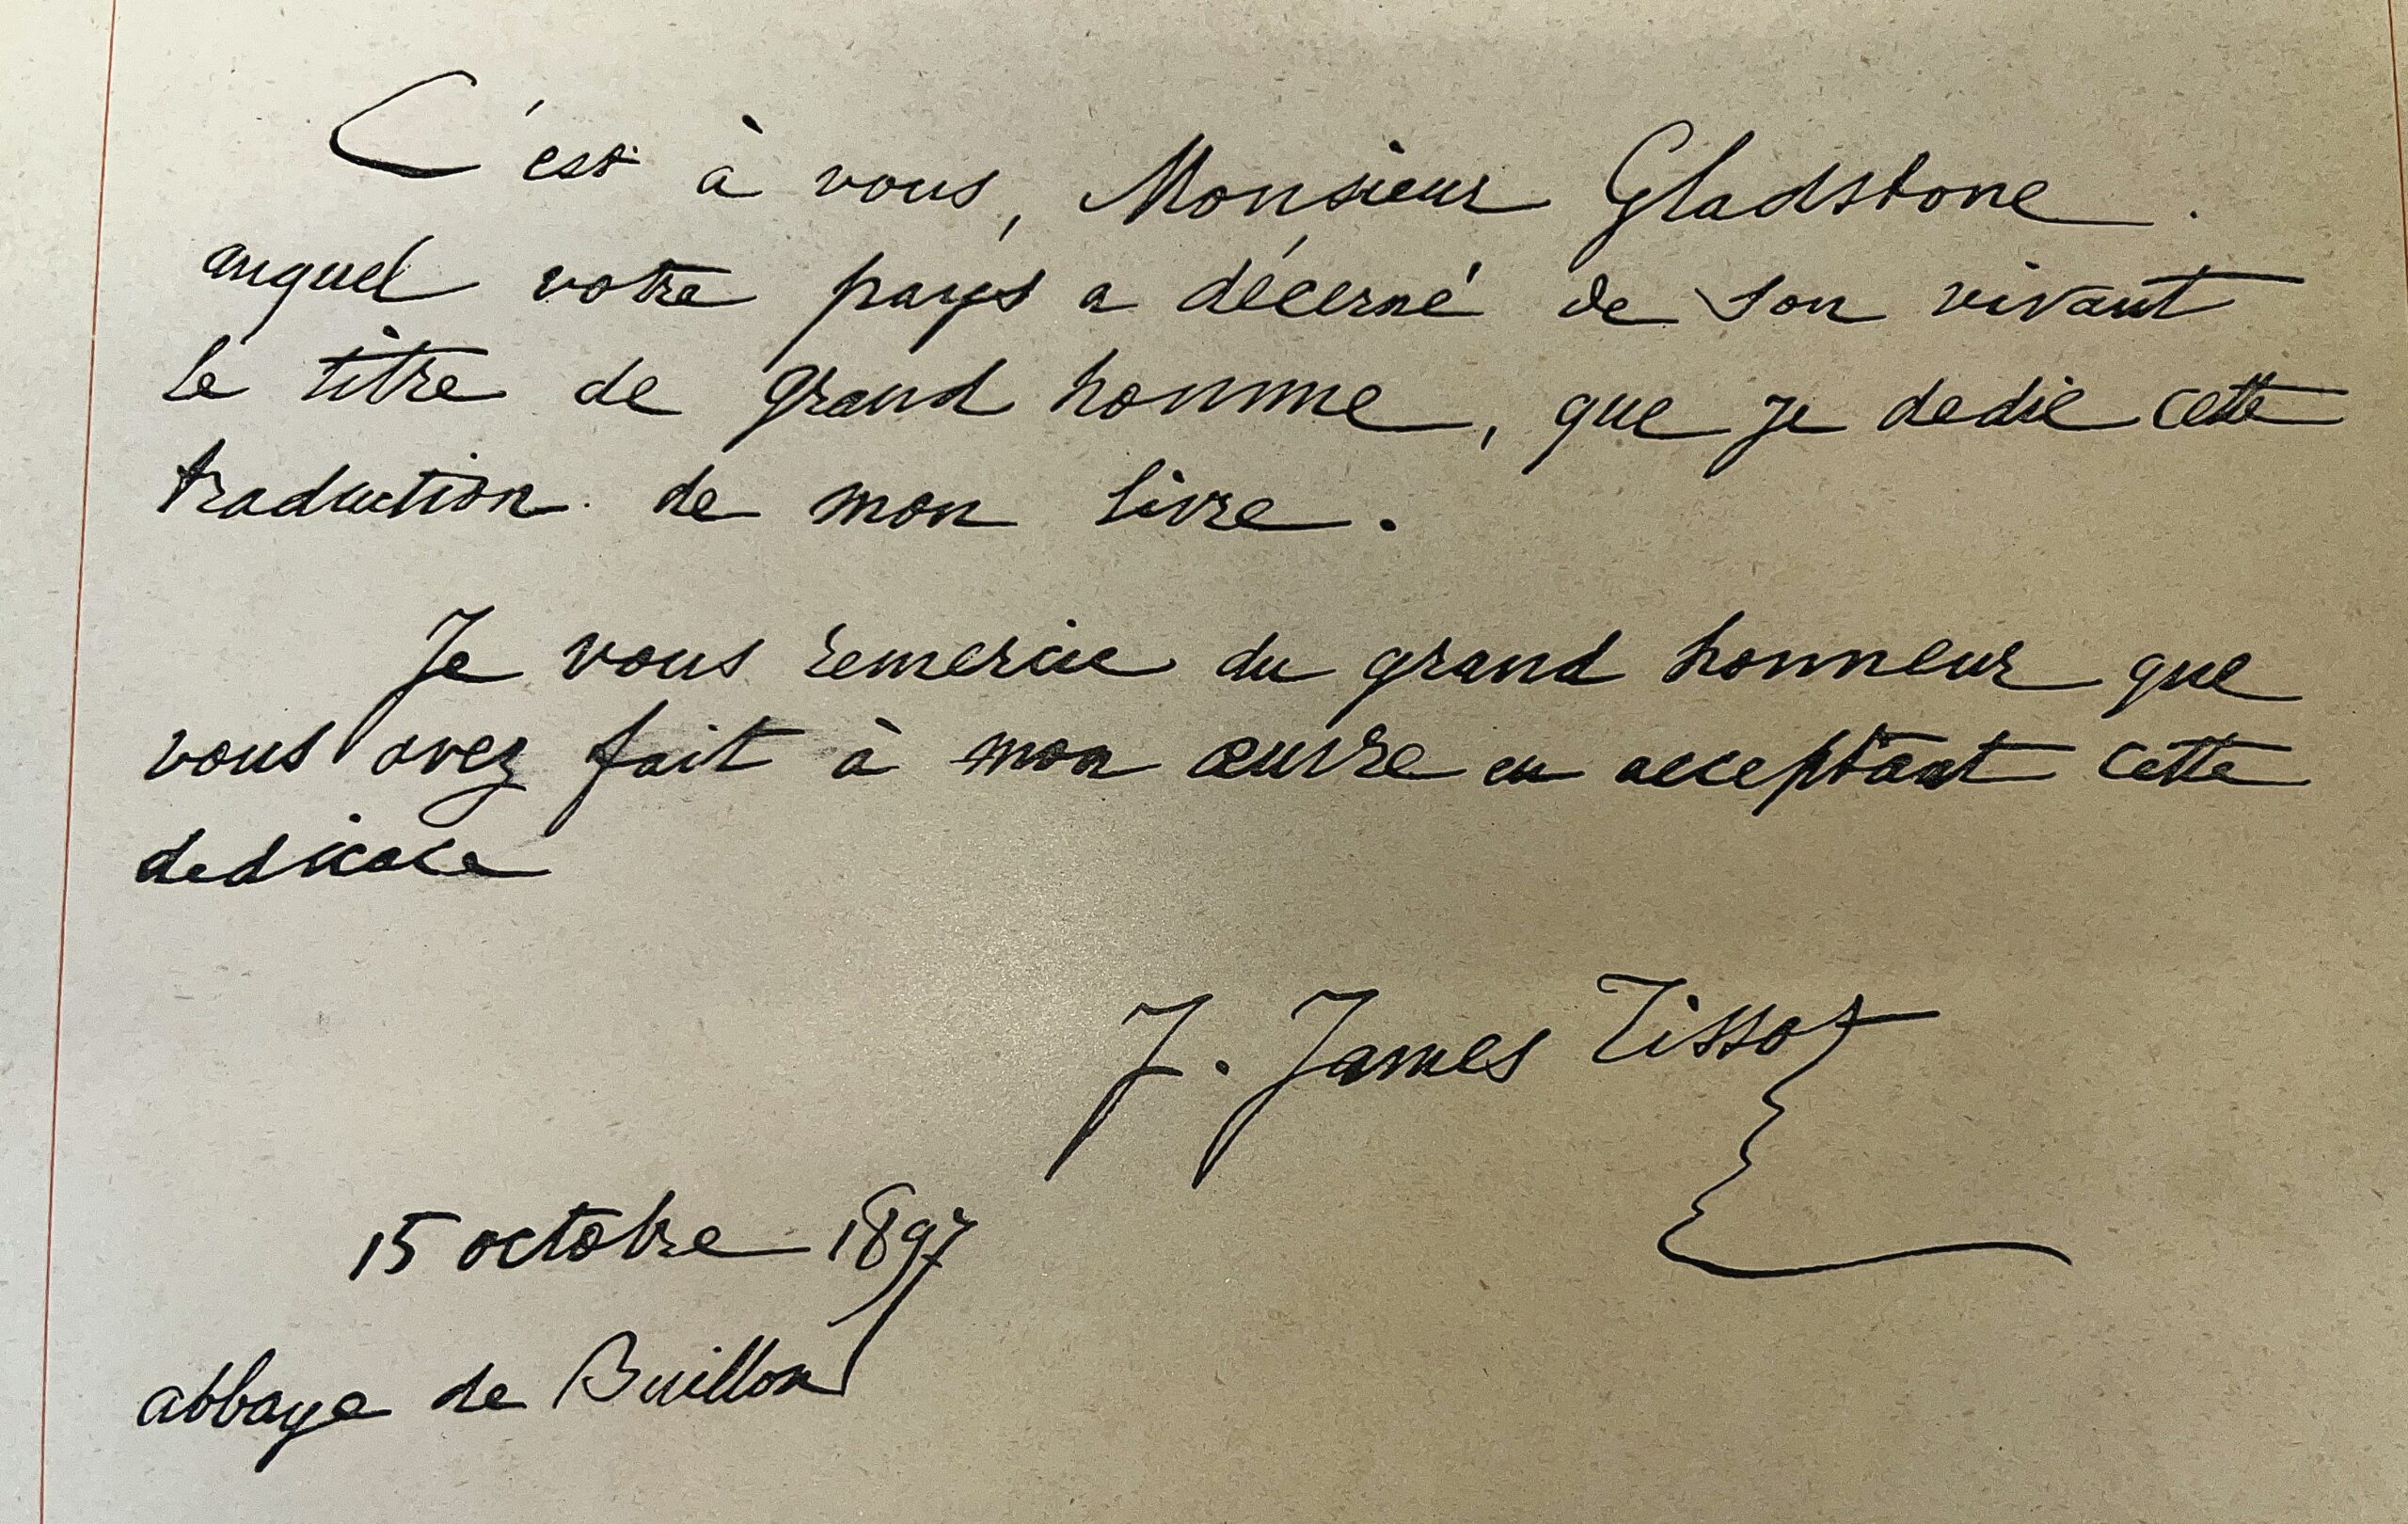 C'est à vous, Monsieur Gladstone.
auquel votre pays a décerné de son vivant
le titre de grand homme, que je dedie cette
traduction de mon livre.
Je vous remercie du grand honneur que
vous avez fait à mon œuvre en acceptant cette
dedicace
J. James Tissot
15 octobre 1897
abbaye de Buillon